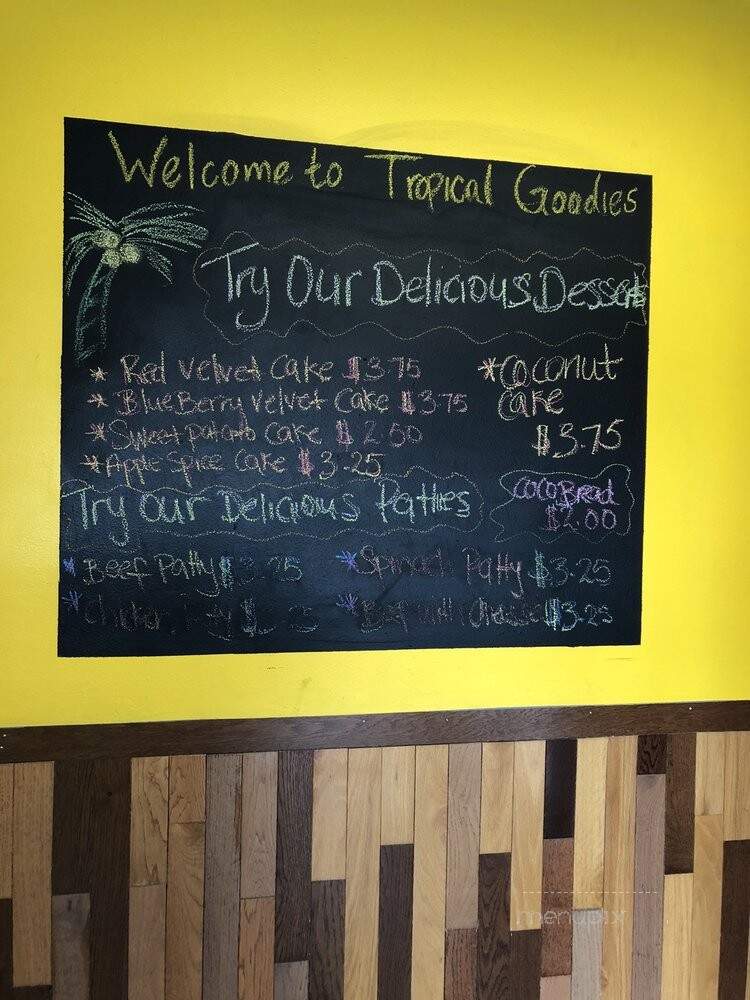 Welcome to Tropical Goodies
Try Our Delicious Desserts
* Red velvet Cake $3.75
* BlueBerry velvet Cake $3.75
* Sweet potato Cake $2.50
* Apple Spice Cake $3.25
*Coconut
Cake
$3.75
Try our Delicious Patties
CocoBread
$2.00
* Beef Patty $3.25
* Spinach Patty $3.25
* Chicken Patty $
* Beef with Cheese $3.25
menupix